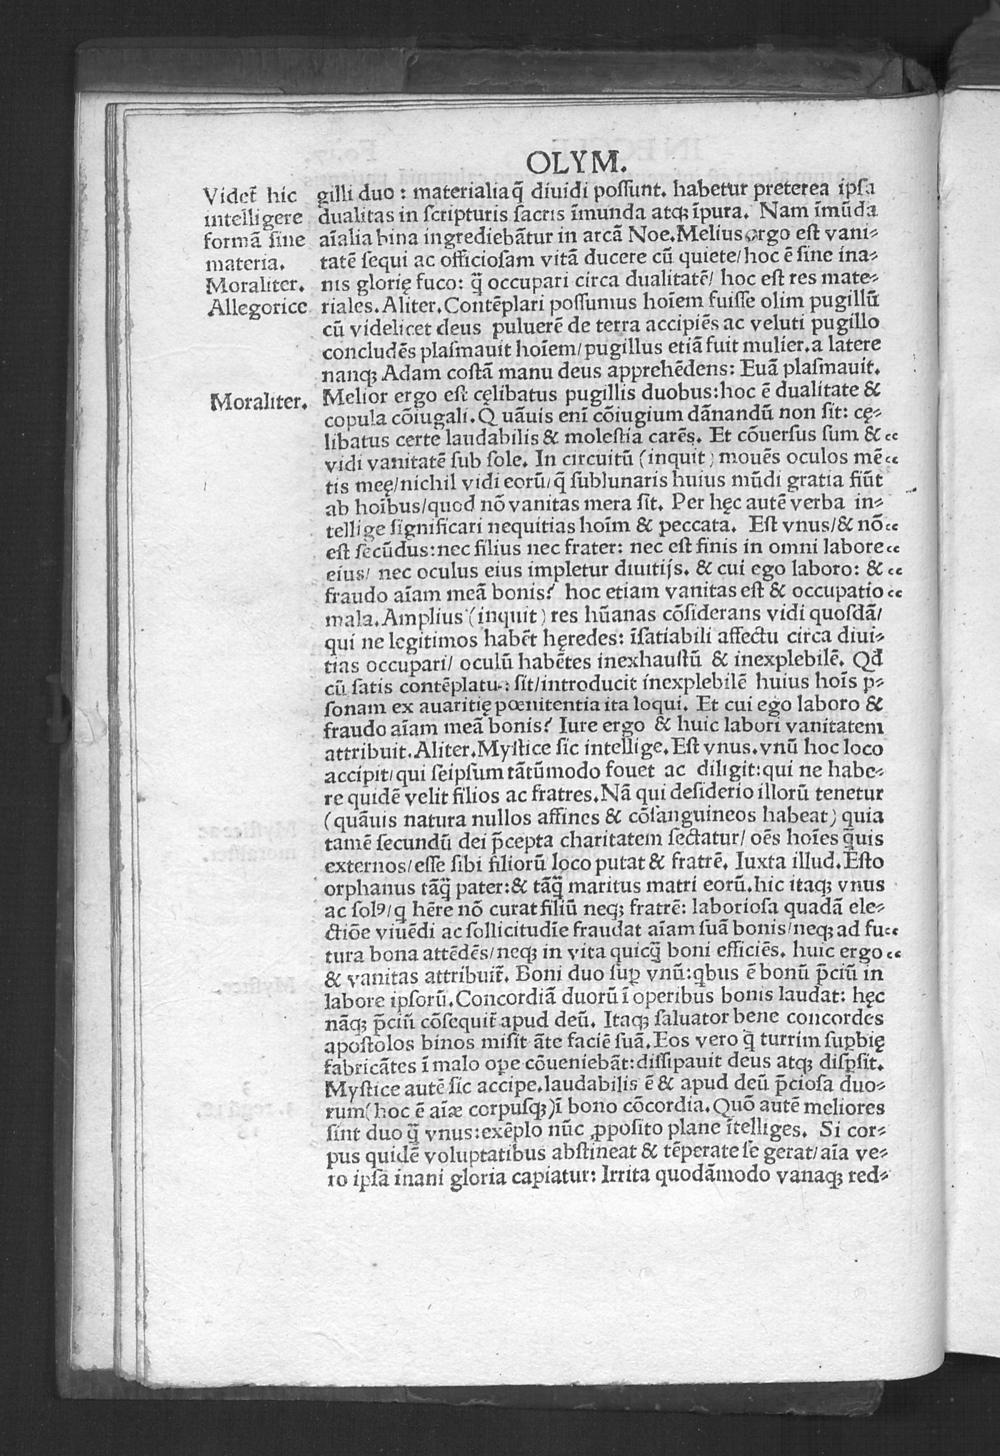 OLYM.
Videt̃ hic
intelligere
formã ſine
materia.
Moraliter.
Allegorice
Moraliter.
gilli duo : materialia q̃ diuidi poſſunt. habetur preterea ipſa
dualitas in ſcripturis ſacris imunda atqꝫ ĩpura. Nam ĩmũda
aĩalia bina ingrediebãtur in arcã Noe. Melius ergo eſt vani⸗
tatẽ ſequi ac officioſam vitã ducere cũ quiete/ hoc ẽ ſine ina⸗
nis glorię fuco: q̃̃ occupari circa dualitatẽ/ hoc eſt res mate⸗
riales. Aliter. Contẽplari poſſumus hoĩem fuiſſe olim pugillũ
cũ videlicet deus puluerẽ de terra accipiẽs ac veluti pugillo
concludẽs plaſmauit hoĩem/ pugillus etiã fuit mulier. a latere
nanqꝫ Adam coſtã manu deus apprehẽdens: Euã plaſmauit.
Melior ergo eſt cęlibatus pugillis duobus: hoc ẽ dualitate &
copula cõiugali. Q uãuis eni cõiugium dãnandũ non ſit: cę⸗
libatus certe laudabilis & moleſtia carẽs. Et cõuerſus ſum & cc
vidi vanitatẽ ſub ſole. In circuitũ (inquit) mouẽs oculos mẽ cc
tis meę/ nichil vidi eorũ/ q̃ ſublunaris huius mũdi gratia fiũt
ab hoĩbus/ quod nõ vanitas mera ſit. Per hęc autẽ verba in⸗
tellige ſignificari nequitias hoĩm & peccata. Eſt vnus/ & nõ cc
eſt ſecũdus: nec filius nec frater: nec eſt finis in omni labore cc
eius/ nec oculus eius impletur diuitijs. & cui ego laboro: & cc
fraudo aĩam meã bonis? hoc etiam vanitas eſt & occupatio cc
mala. Amplius (inquit) res hũanas cõſiderans vidi quoſdã/
qui ne legitimos habẽt hęredes: ĩſatiabili affectu circa diui⸗
tias occupari/ oculũ habẽtes inexhauſtũ & inexplebilẽ. Qđ
cũ ſatis contẽplatu ſit/ introducit inexplebilẽ huius hoĩs p⸗
ſonam ex auaritię pœnitentia ita loqui. Et cui ego laboro &
fraudo aĩam meã bonis? Iure ergo & huic labori vanitatem
attribuit. Aliter. Myſtice ſic intellige. Eſt vnus. vnũ hoc loco
accipit/ qui ſeipſum tãtũmodo fouet ac diligit: qui ne habe⸗
re quidẽ velit filios ac fratres. Nã qui deſiderio illorũ tenetur
(quãuis natura nullos affines & cõſanguineos habeat) quia
tamẽ ſecundũ dei p̃cepta charitatem ſectatur/ oẽs hoĩes q̃uis
externos/ eſſe ſibi filiorũ loco putat & fratrẽ. Iuxta illud. Eſto
orphanus tãq̃̃ pater: & tãq̃̃ maritus matri eorũ. hic itaqꝫ vnus
ac ſolꝰ/ q hẽre nõ curat filiũ neqꝫ fratrẽ: laborioſa quadã ele⸗
ctiõe viuẽdi ac ſollicitudĩe fraudat aĩam ſuã bonis/ neqꝫ ad fu cc
tura bona attẽdẽs/ neqꝫ in vita quicq̃̃ boni efficiẽs. huic ergo cc
& vanitas attribuit̃. Boni duo ſuꝑ vnũ: qbus ẽ bonũ p̃ciũ in
labore ipſorũ. Concordiã duorũ ĩ operibus bonis laudat: hęc
nãqꝫ p̃ciũ cõſequit̃ apud deũ. Itaqꝫ ſaluator bene concordes
apoſtolos binos miſit ãte faciẽ ſuã. Eos vero q̃ turrim ſuꝑbię
fabricãtes ĩ malo ope cõueniebãt: diſſipauit deus atqꝫ diſꝑſit.
Myſtice autẽ ſic accipe. laudabilis ẽ & apud deũ p̃cioſa duo⸗
rum (hoc ẽ aĩæ corpuſqꝫ) ĩ bono cõcordia. Quõ autẽ meliores
ſint duo q̃̃ vnus: exẽplo nũc ꝓpoſito plane ĩtelliges. Si cor⸗
pus quidẽ voluptatibus abſtineat & tẽperate ſe gerat/ aĩa ve⸗
ro ipſa inani gloria capiatur: Irrita quodãmodo vanaqꝫ red⸗